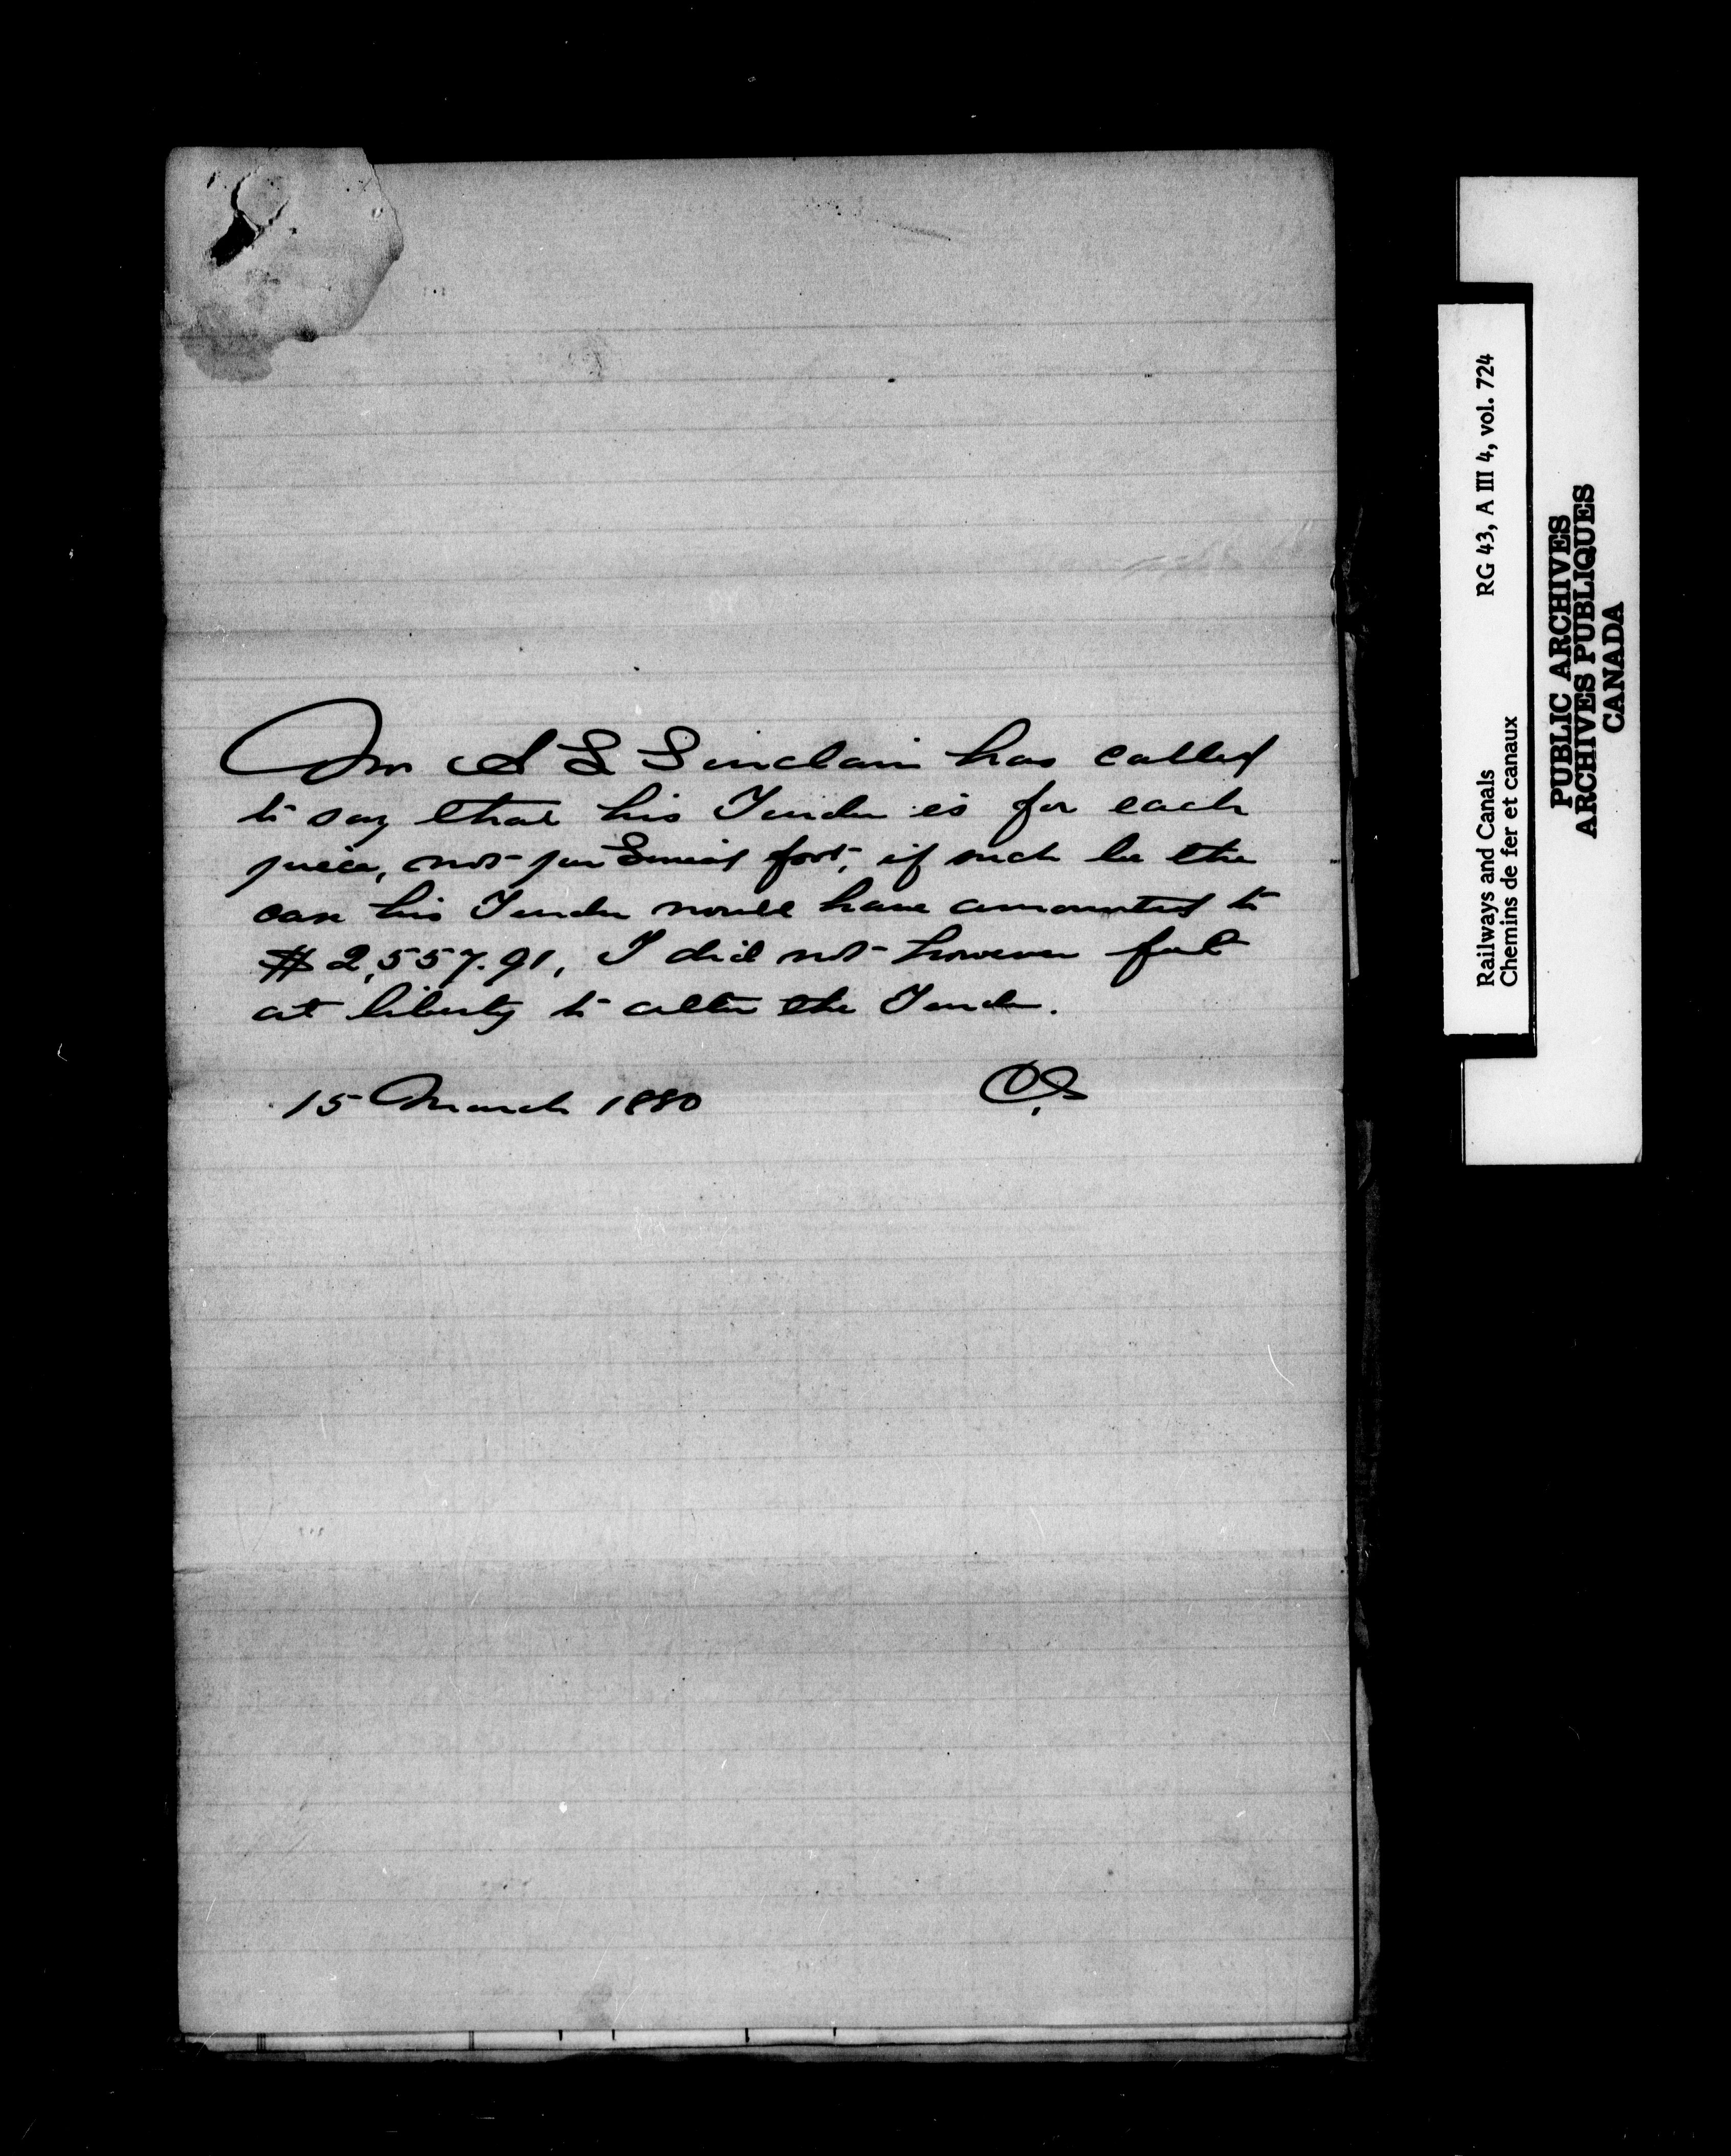 Mr A L Sinclair has called
to say that his Tender is for each
piece, not per Lineal foot, if such be the
case his Tender would have amounted to
$2,557.91, I did not however feel
at liberty to alter the Tender.
15 March 1880
Railways and Canals RG 43, A III 4, vol. 724
Chemins de fer et canaux
PUBLIC ARCHIVES
ARCHIVES PUBLIQUES
CANADA